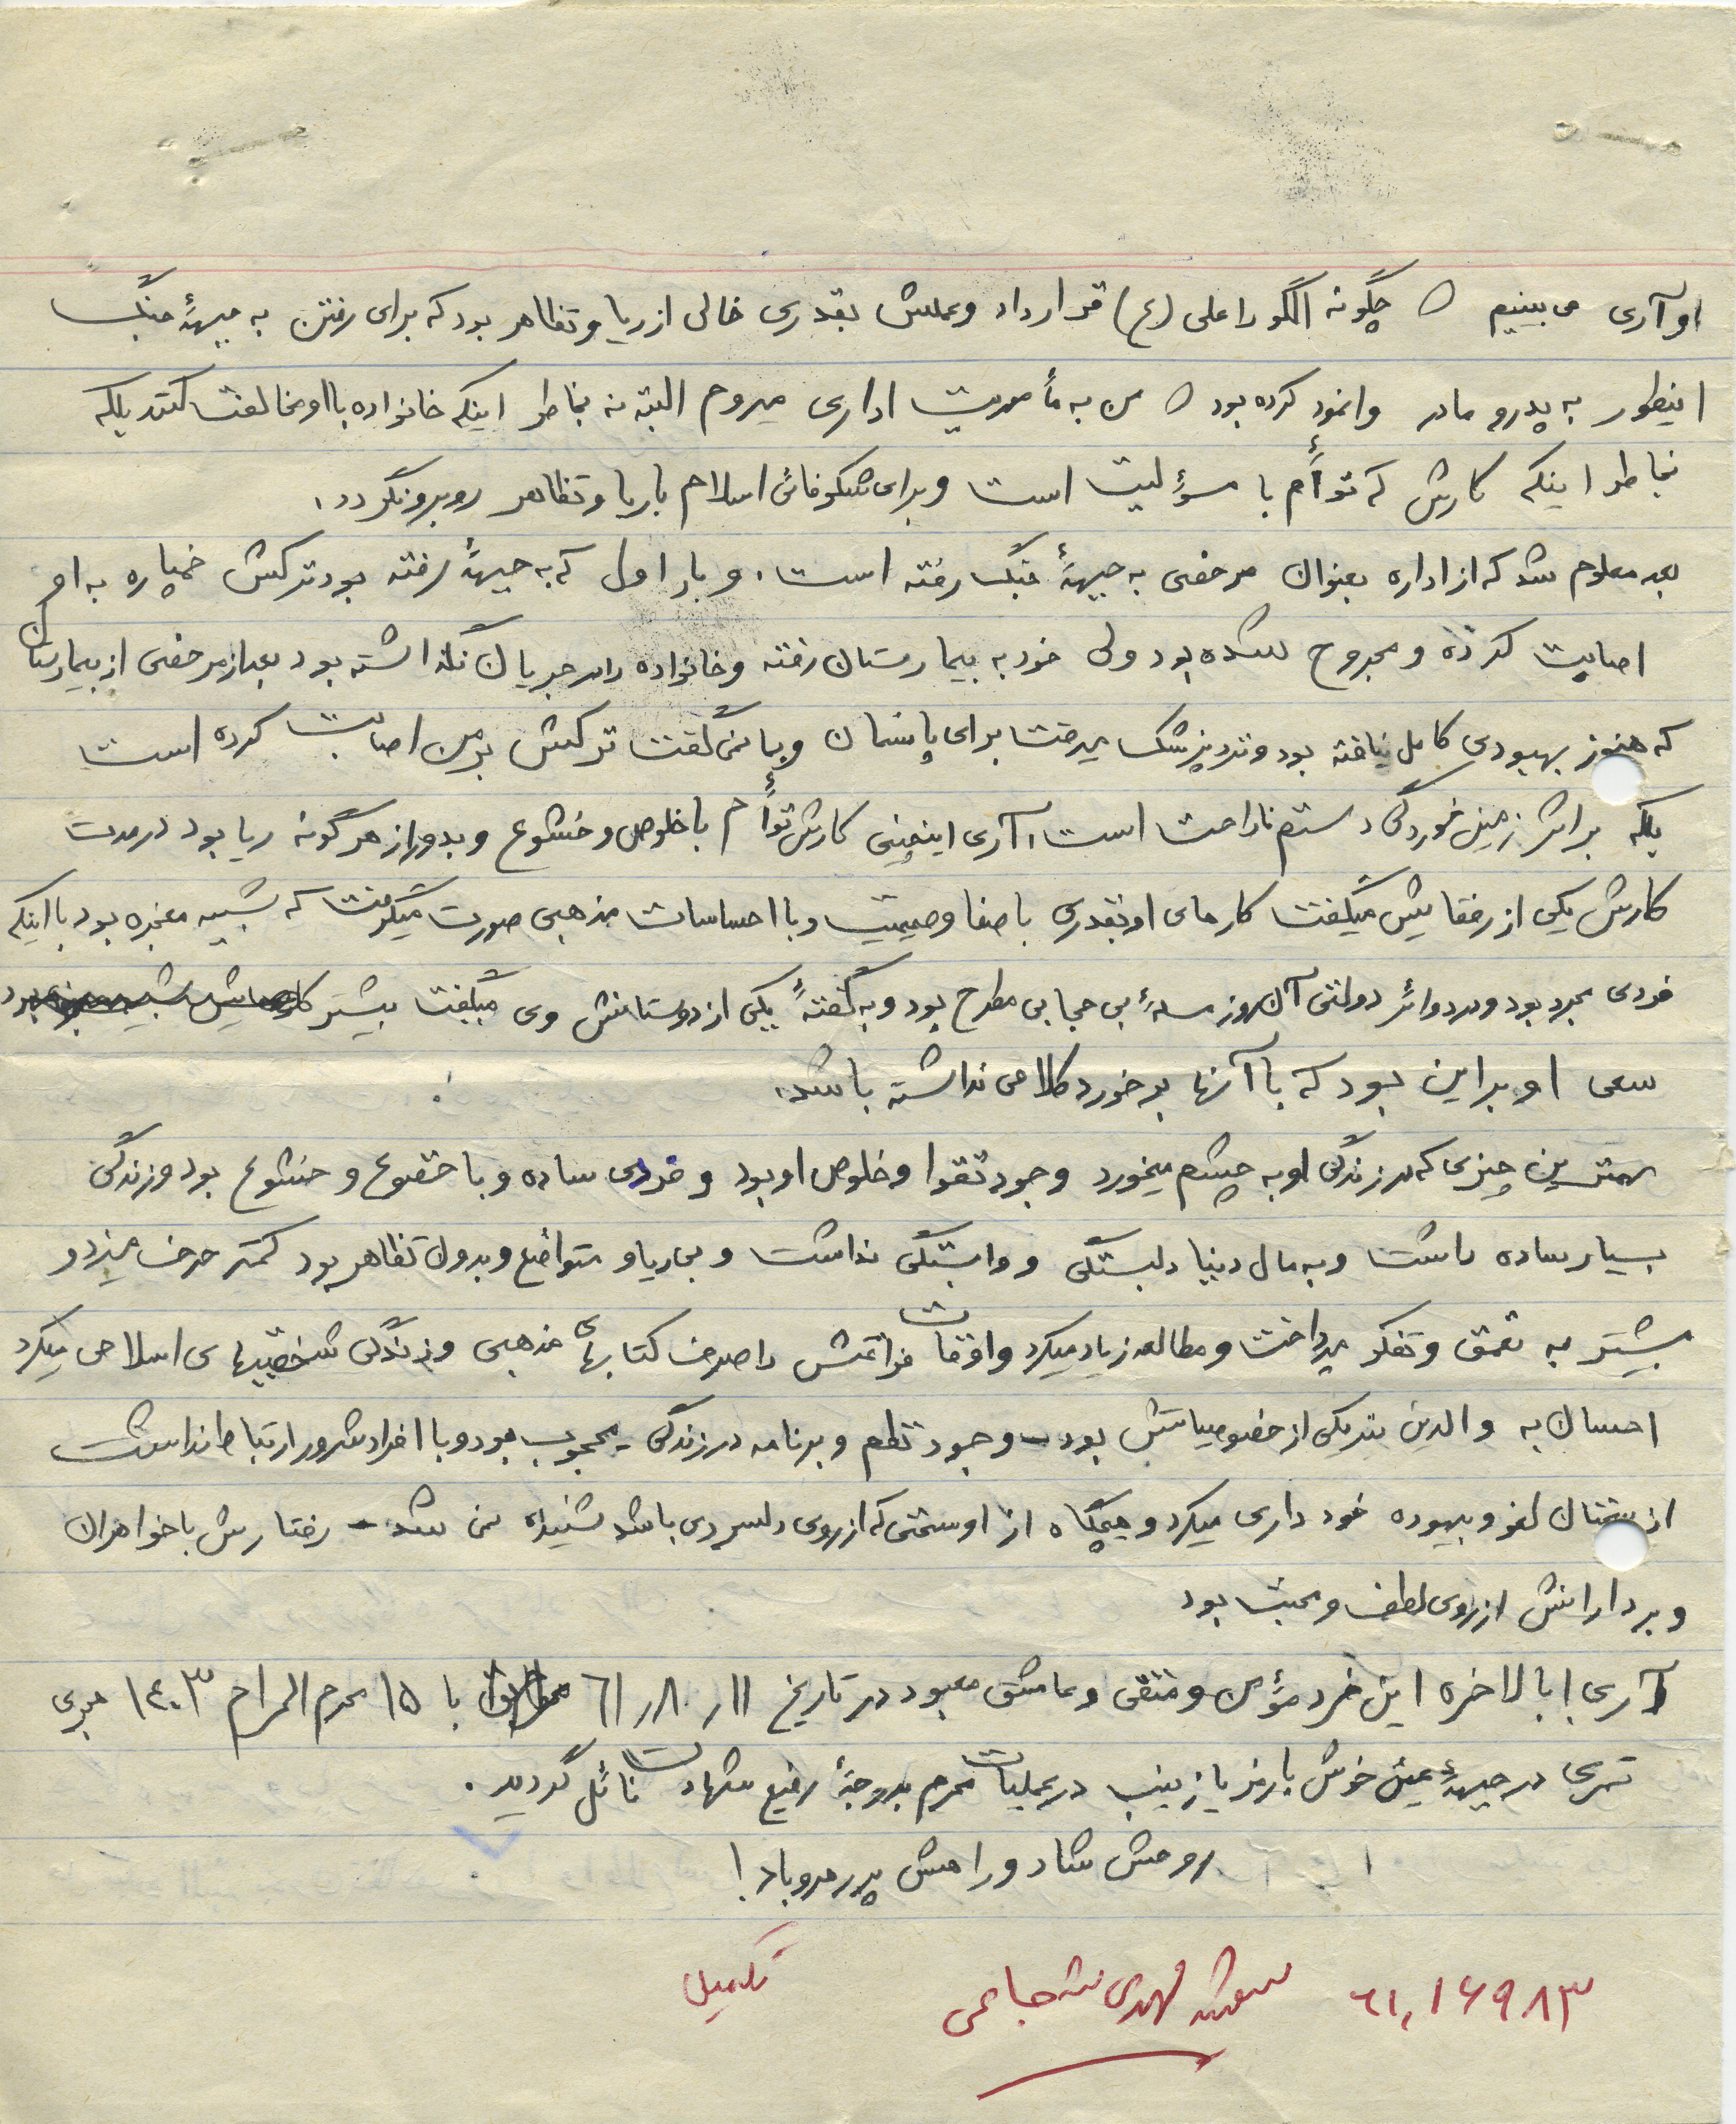 او آری می بینیم که چگونه الگو را علی (ع) قرار داد و عملش بقدری خالی از ریا و تظاهر بود که برای رفتن به جبههٔ جنگ
اینطور به پدر و مادر وانمود کرده بود که من به مأموریت اداری میروم البته نه بخاطر اینکه خانواده با او مخالفت کنند بلکه
بخاطر اینکه کارش که توأم با مسؤلیت است و برای شکوفائی اسلام با ریا و تظاهر روبرو نگردد.
بعد معلوم شد که از اداره بعنوان مرخصی به جبههٔ جنگ رفته است. و بار اول که به جبههٔ رفته بود ترکش خمپاره به او
اصابت کرده و مجروح شده بود ولی خود به بیمارستان رفته و خانواده را در جریان نگذاشته بود بعد از مرخصی از بیمارستان
که هنوز بهبودی کامل نیافته بود و نزد پزشک میرفت برای پانسمان و بما نمی گفت ترکش بر من اصابت کرده است
بلکه بر اثر زمین خوردگی دستم ناراحت است، آری اینچنین کارش توأم با خلوص و خشوع و بدور از هر گونه ریا بود در مدت
کارش یکی از رفقایش میگفت کارهای او بقدری با صفا و صمیمیت و با احساسات مذهبی صورت میگرفت که شبیه معجزه بود با اینکه
فردی مجرد بود و در دوائر دولتی آن روز مسئلهٔ بی حجابی مطرح بود و به گفتهٔ یکی از دوستانش وی میگفت بیشتر
سعی او بر این بود که با آنها برخورد کلامی نداشته باشد.
مهمترین چیزی که در زندگی او به چشم میخورد وجود تقوا و خلوص او بود و فردی ساده و با خضوع و خشوع بود و زندگی
بسیار ساده داشت و به مال دنیا دلبستگی و وابستگی نداشت و بی ریا و متواضع و بدون تظاهر بود کمتر حرف میزد و
بیشتر به تعمق و تفکر میپرداخت و مطالعه زیاد میکرد و اوقات فراغتش را صرف کتابهای مذهبی و زندگی شخصیتهای اسلامی میکرد
احسان به والدین نیز یکی از خصوصیاتش بود - وجود نظم و برنامه در زندگی - محجوب بود و با افراد شرور ارتباط نداشت
از سخنان لغو و بیهوده خود داری میکرد و هیچگاه از او سخنی که از روی دلسردی باشد شنیده نمی شد - رفتارش با خواهران
و بردارانش از روی لطف و محبت بود
آری! بالاخره این فرد مؤمن و متقی و عاشق معبود در تاریخ ۱۱ر ۸ر ۶۱ موافق با ۱۵ محرم الحرام ۱۴۰۳ هجری
قمری در جبههٔ عین خوش با رمز یا زینب در عملیات محرم بدرجهٔ رفیع شهادت نائل گردید.
روحش شاد و راهش پر رهرو باد!
۶۱,۱۶۹۸۳ مهدی شجاعی تکمیل